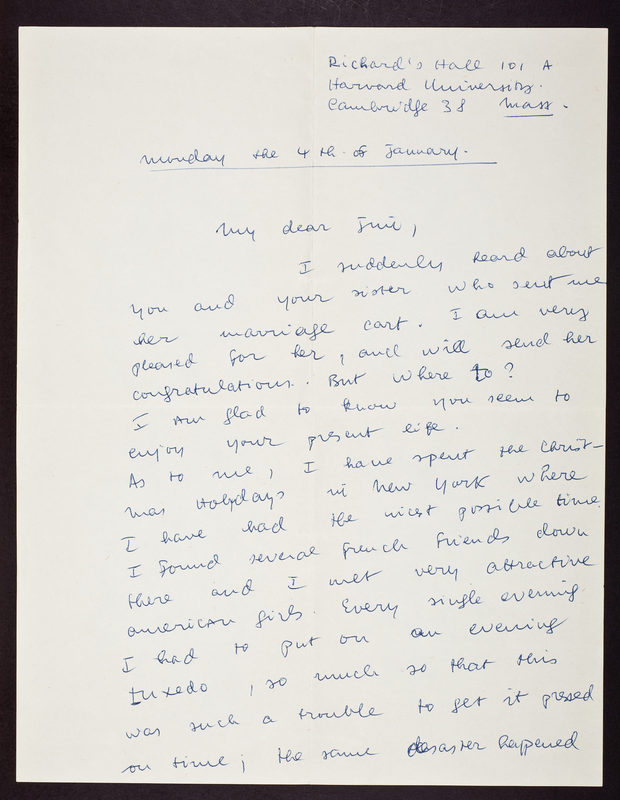 Richard's Hall 101 A
Harvard University.
Cambridge 38 Mass.
Monday the 4 th of January.
My dear
I suddenly heard about
you and your sister who sent me
her marriage cart. I am very
pleased for her, and will send her
congratulations. But where to?
I am glad to know you seem to
enjoy your present life.
As to me, I have spent the Christ-
mas Holydays in New York where
I have had the nicest possible time.
I found several french friends down
there and I met very attractive
american girls. Every single evening
I had to put on an evening
tuxedo, so much so that this
was such a trouble to get it pressed
on time; the same desaster happened